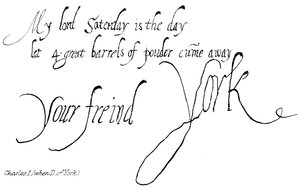 My lord Saterday is the day
let 4 great barrels of pouder cūme away
Your freind York
Charles I (when D. of York)